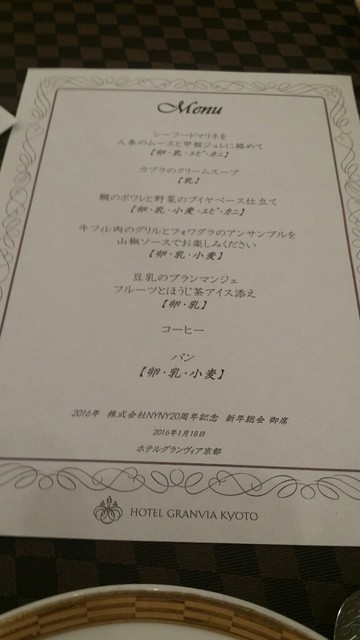 Menu
シーフードマリネを
人参のムースと甲殻ジュレに絡めて
【卵・乳・エビ・カニ】
カブラのクリームスープ
【乳】
鯛のポワレと野菜のブイヤベース仕立て
【卵・乳・小麦・エビ・カニ】
牛フィレ肉のグリルとフォワグラのアンサンブルを
山椒ソースでお楽しみください
【卵・乳・小麦】
豆乳のブランマンジェ
フルーツとほうじ茶アイス添え
【卵・乳】
コーヒー
パン
【卵・乳・小麦】
2016年 株式会社NYNY20周年記念 新年総会 御席
2016年1月18日
ホテルグランヴィア京都
HOTEL GRANVIA KYOTO